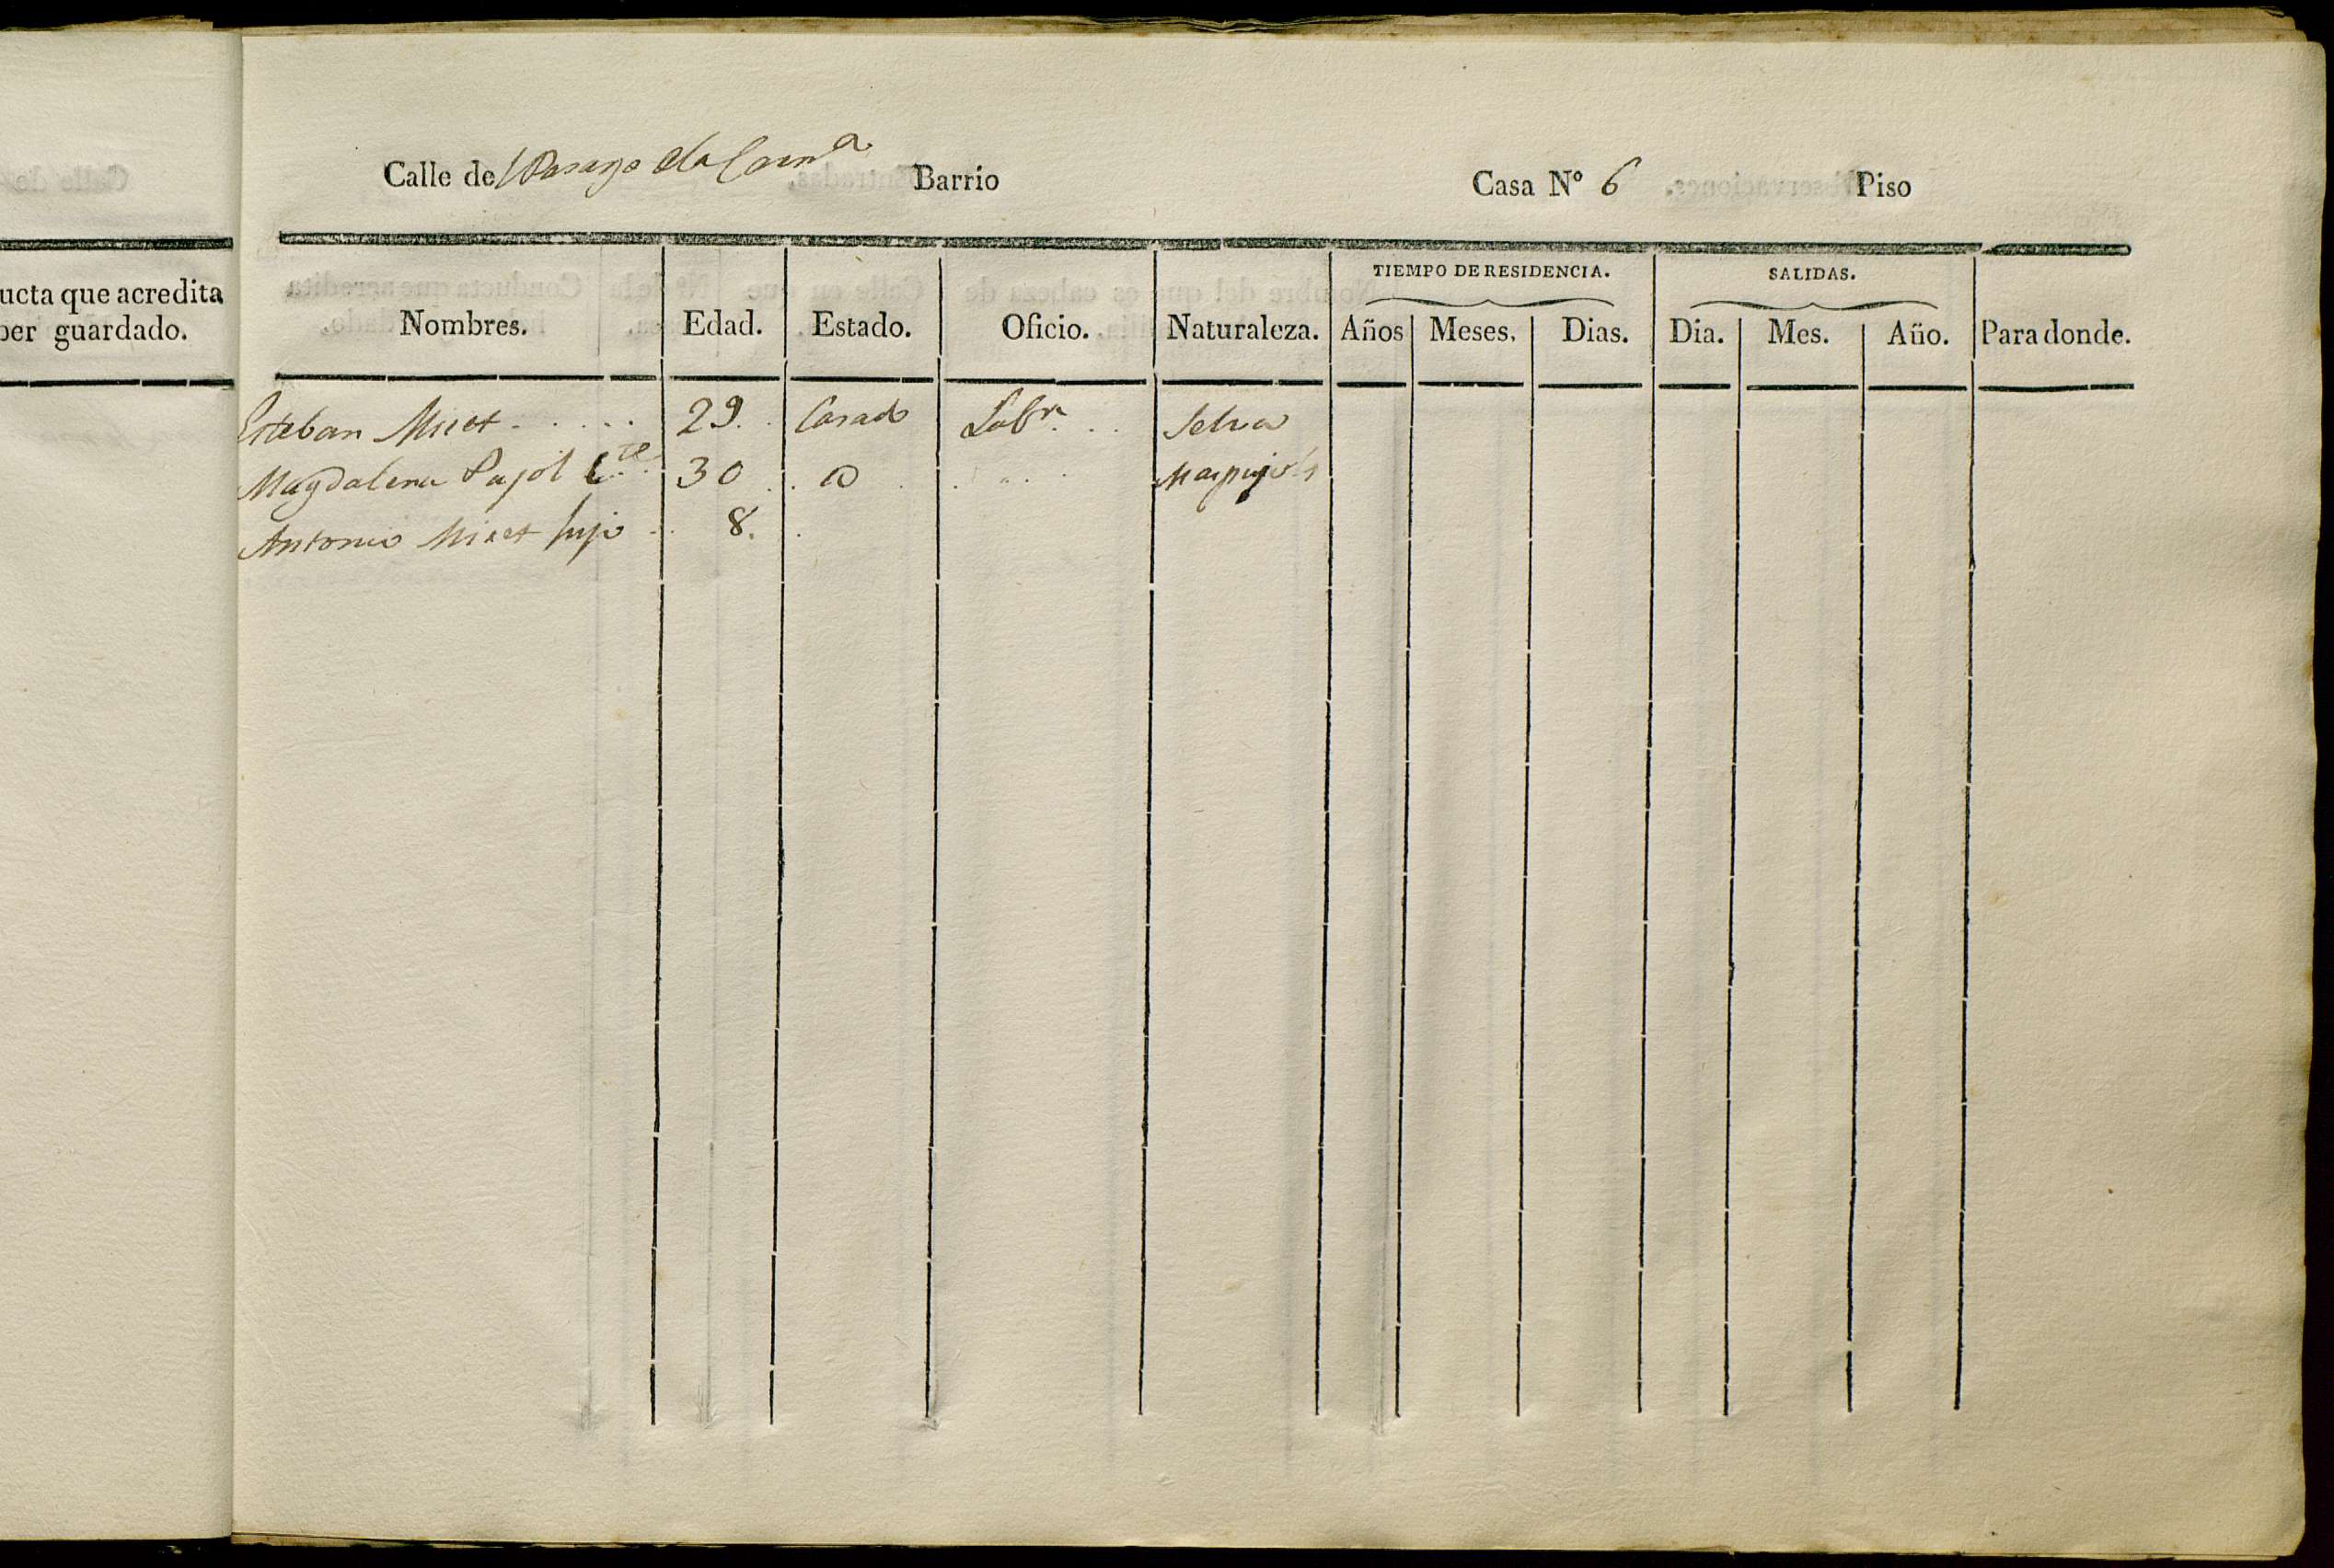 ucta que acredita
ber guardado.
Calle de l Pasage de la Barrio Casa Nº 6 Piso
TIEMPO DE RESIDENCIA. SALIDAS.
Nombres. Edad. Estado. Oficio. Naturaleza. Años Meses. Dias. Dia. Mes. Año. Para donde.
Esteban Miret 29. Casado Labr. Selva
Magdalena Pujol 30 a Maspujols
Antonio Miret hijo 8.